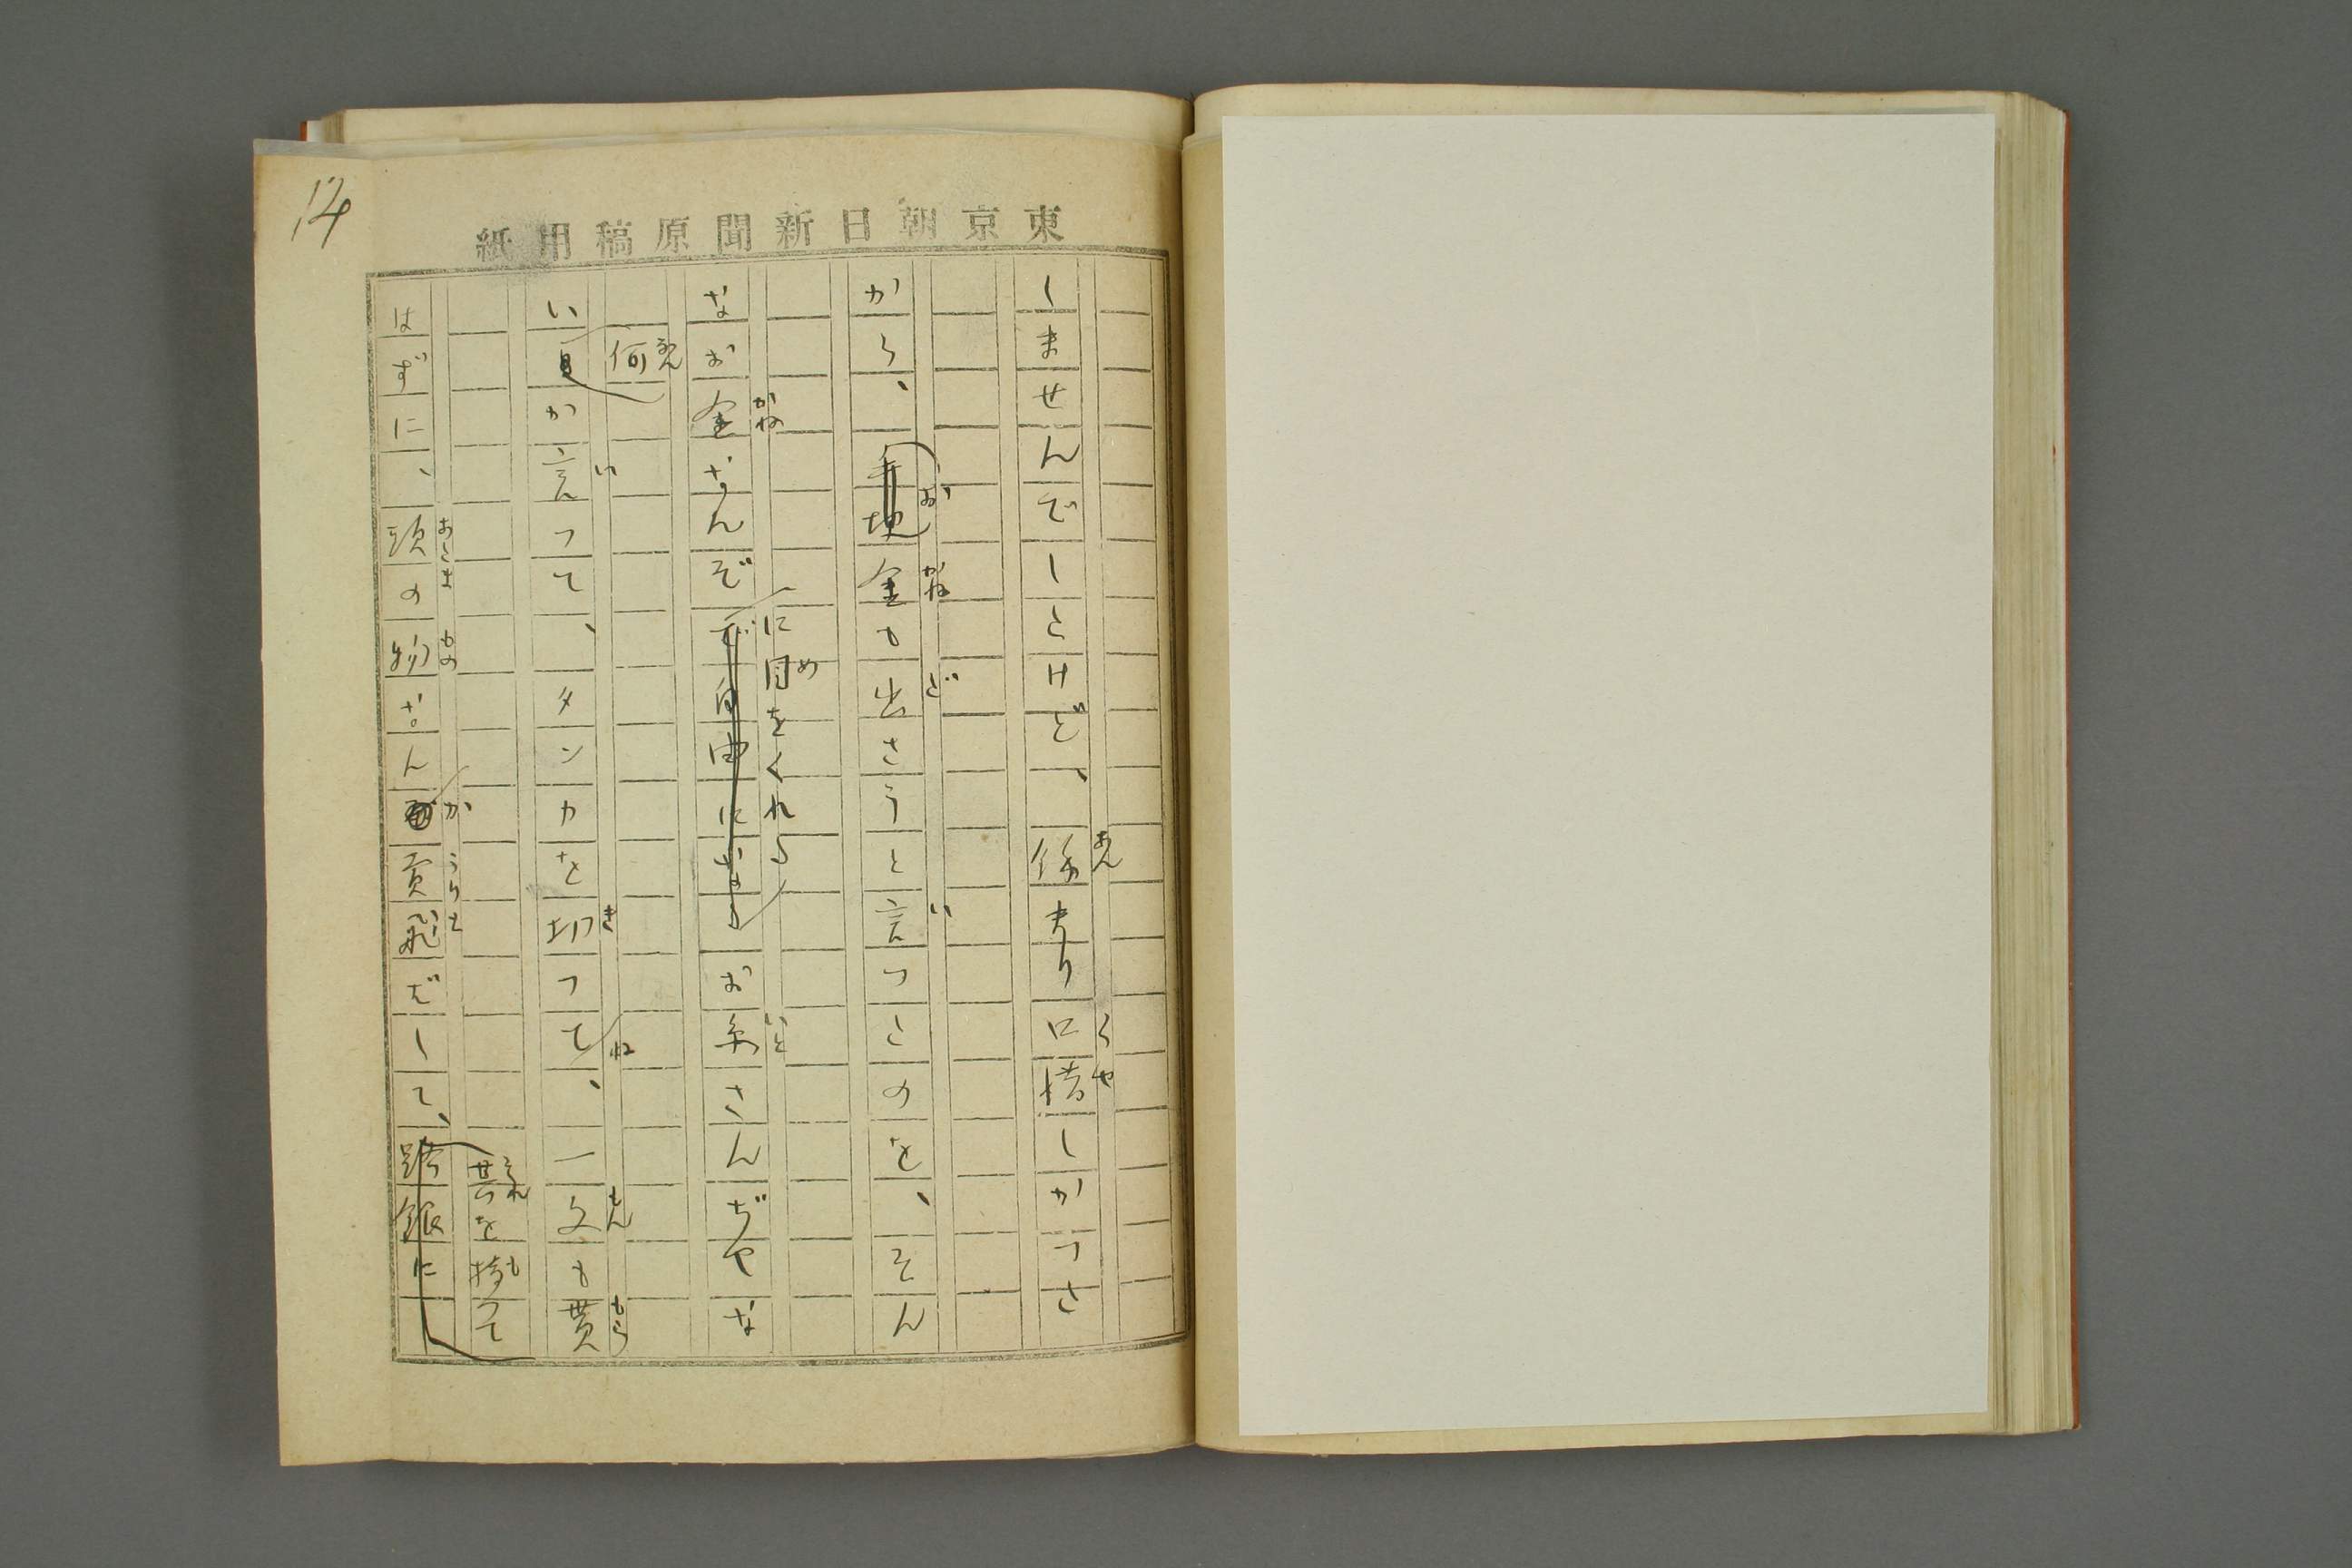 14
東京朝日新聞原稿用紙
しませんでしたけど、余まり口惜しかつた
から、金も出さうと言つたのを、そん
なお金なんぞに目をくれるお糸さんぢやな
い何か言つて、タンカを切つてね、一文も貰
はずに、頭の物なんか賣飛ばして、其を持つて